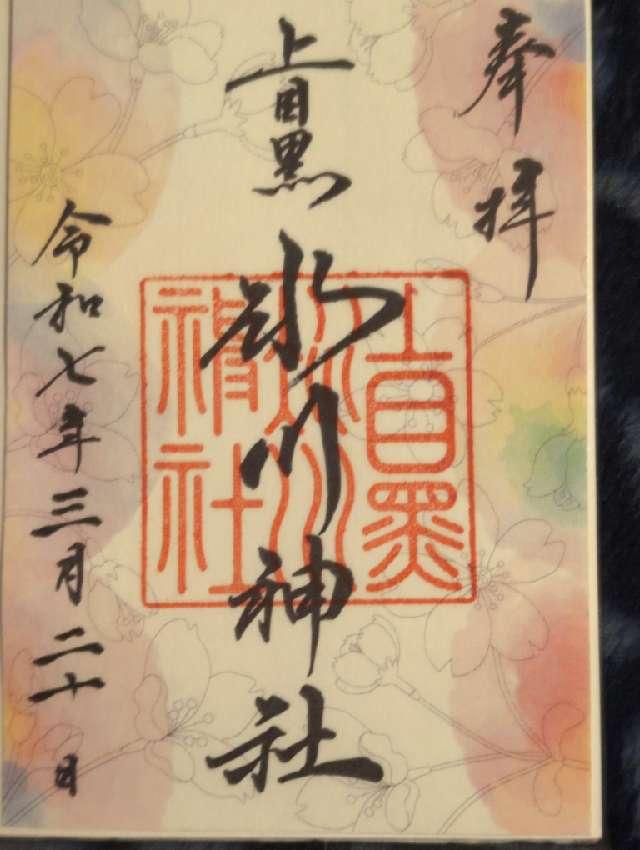 奉拝
上目黒氷川神社
上目黒
氷川
神社
令和七年三月二十日